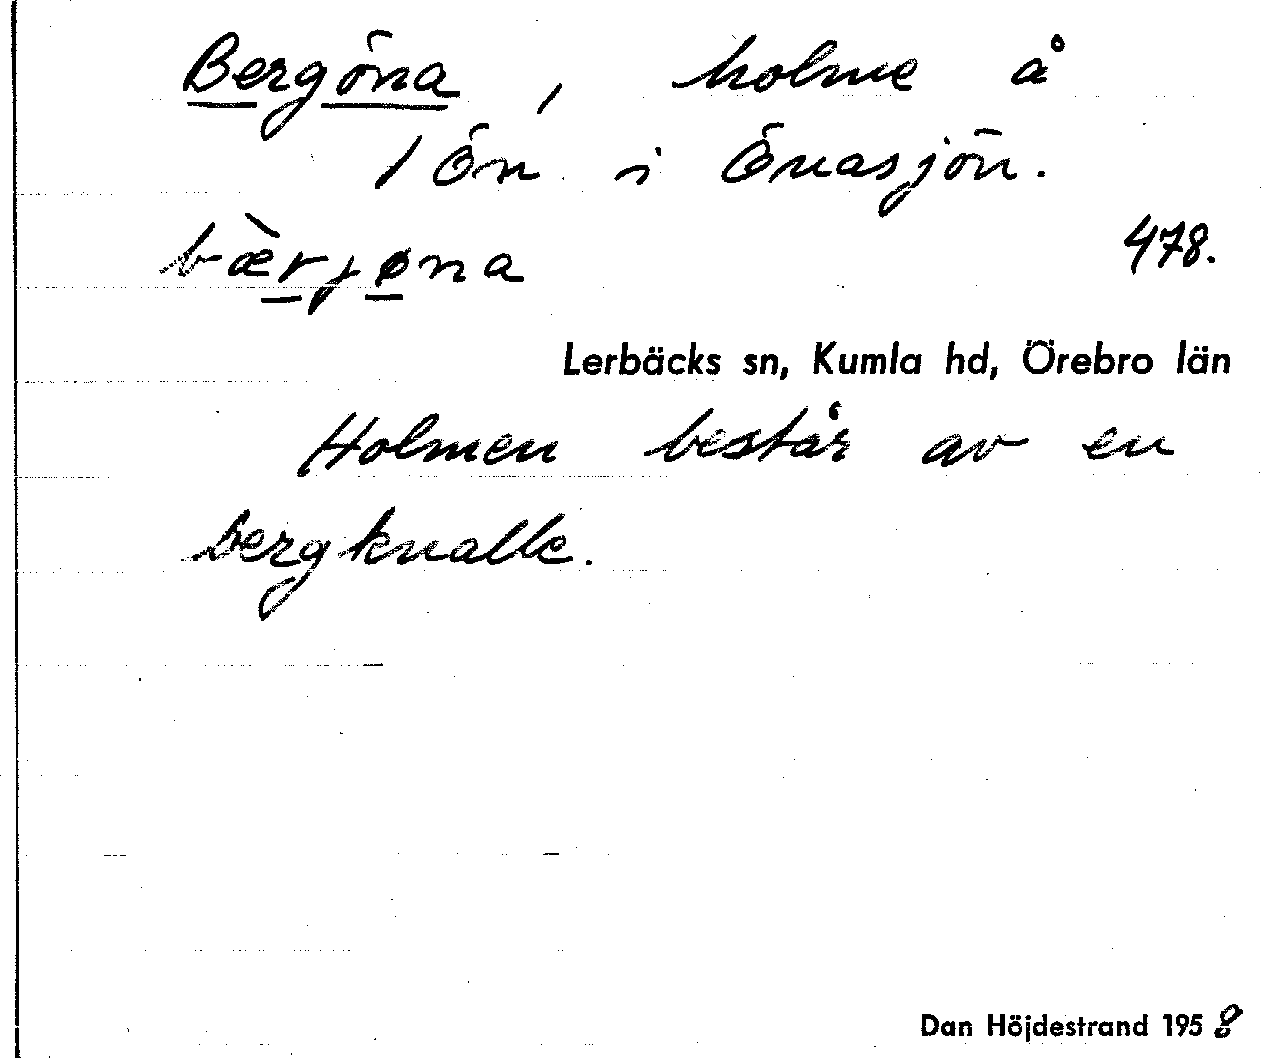 Bergöna, holme å
1 Ön i Önasjön.
bær̠jø̠na 478.
Lerbäcks sn, Kumla hd, Örebro län
Holmen består av en
bergknalle.
Dan Höjdestrand 1958